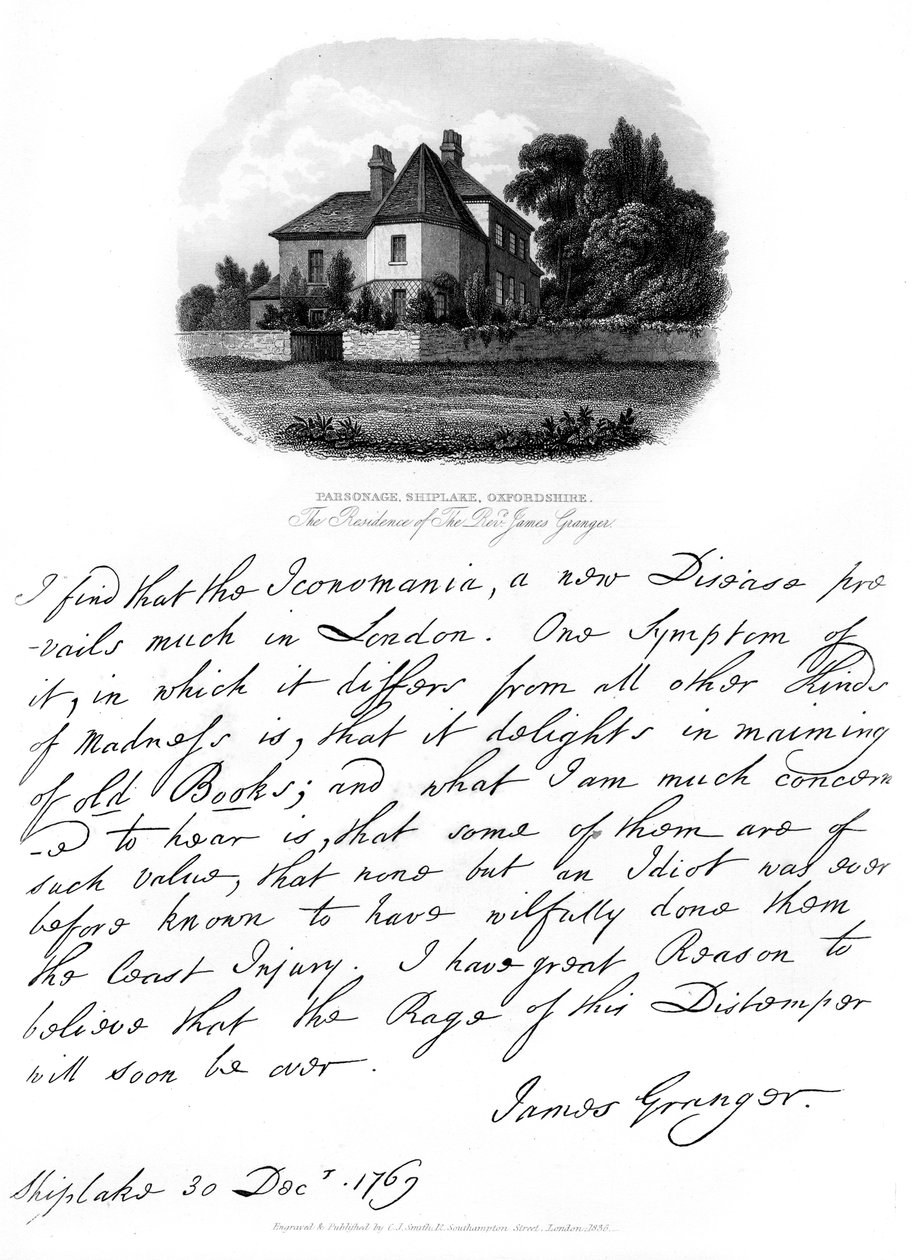 J. C. Buckler del.
PARSONAGE, SHIPLAKE, OXFORDSHIRE.
The Residence of The Revd. James Granger.
I find that the Iconomania, a new Disease pre
-vails much in London. One Symptom of
it, in which it differs from all other Kinds
of Madness is, that it delights in maiming
of old Books; and what I am much concern
-ed to hear is, that some of them are of
such value, that none but an Idiot was ever
before known to have wilfully done them
the least Injury. I have great Reason to
believe that the Rage of this Distemper
will soon be over.
James Granger.
Shiplake 30 Decr. 1769
Engraved & Published by C. J. Smith, Southampton Street, London, 1836.